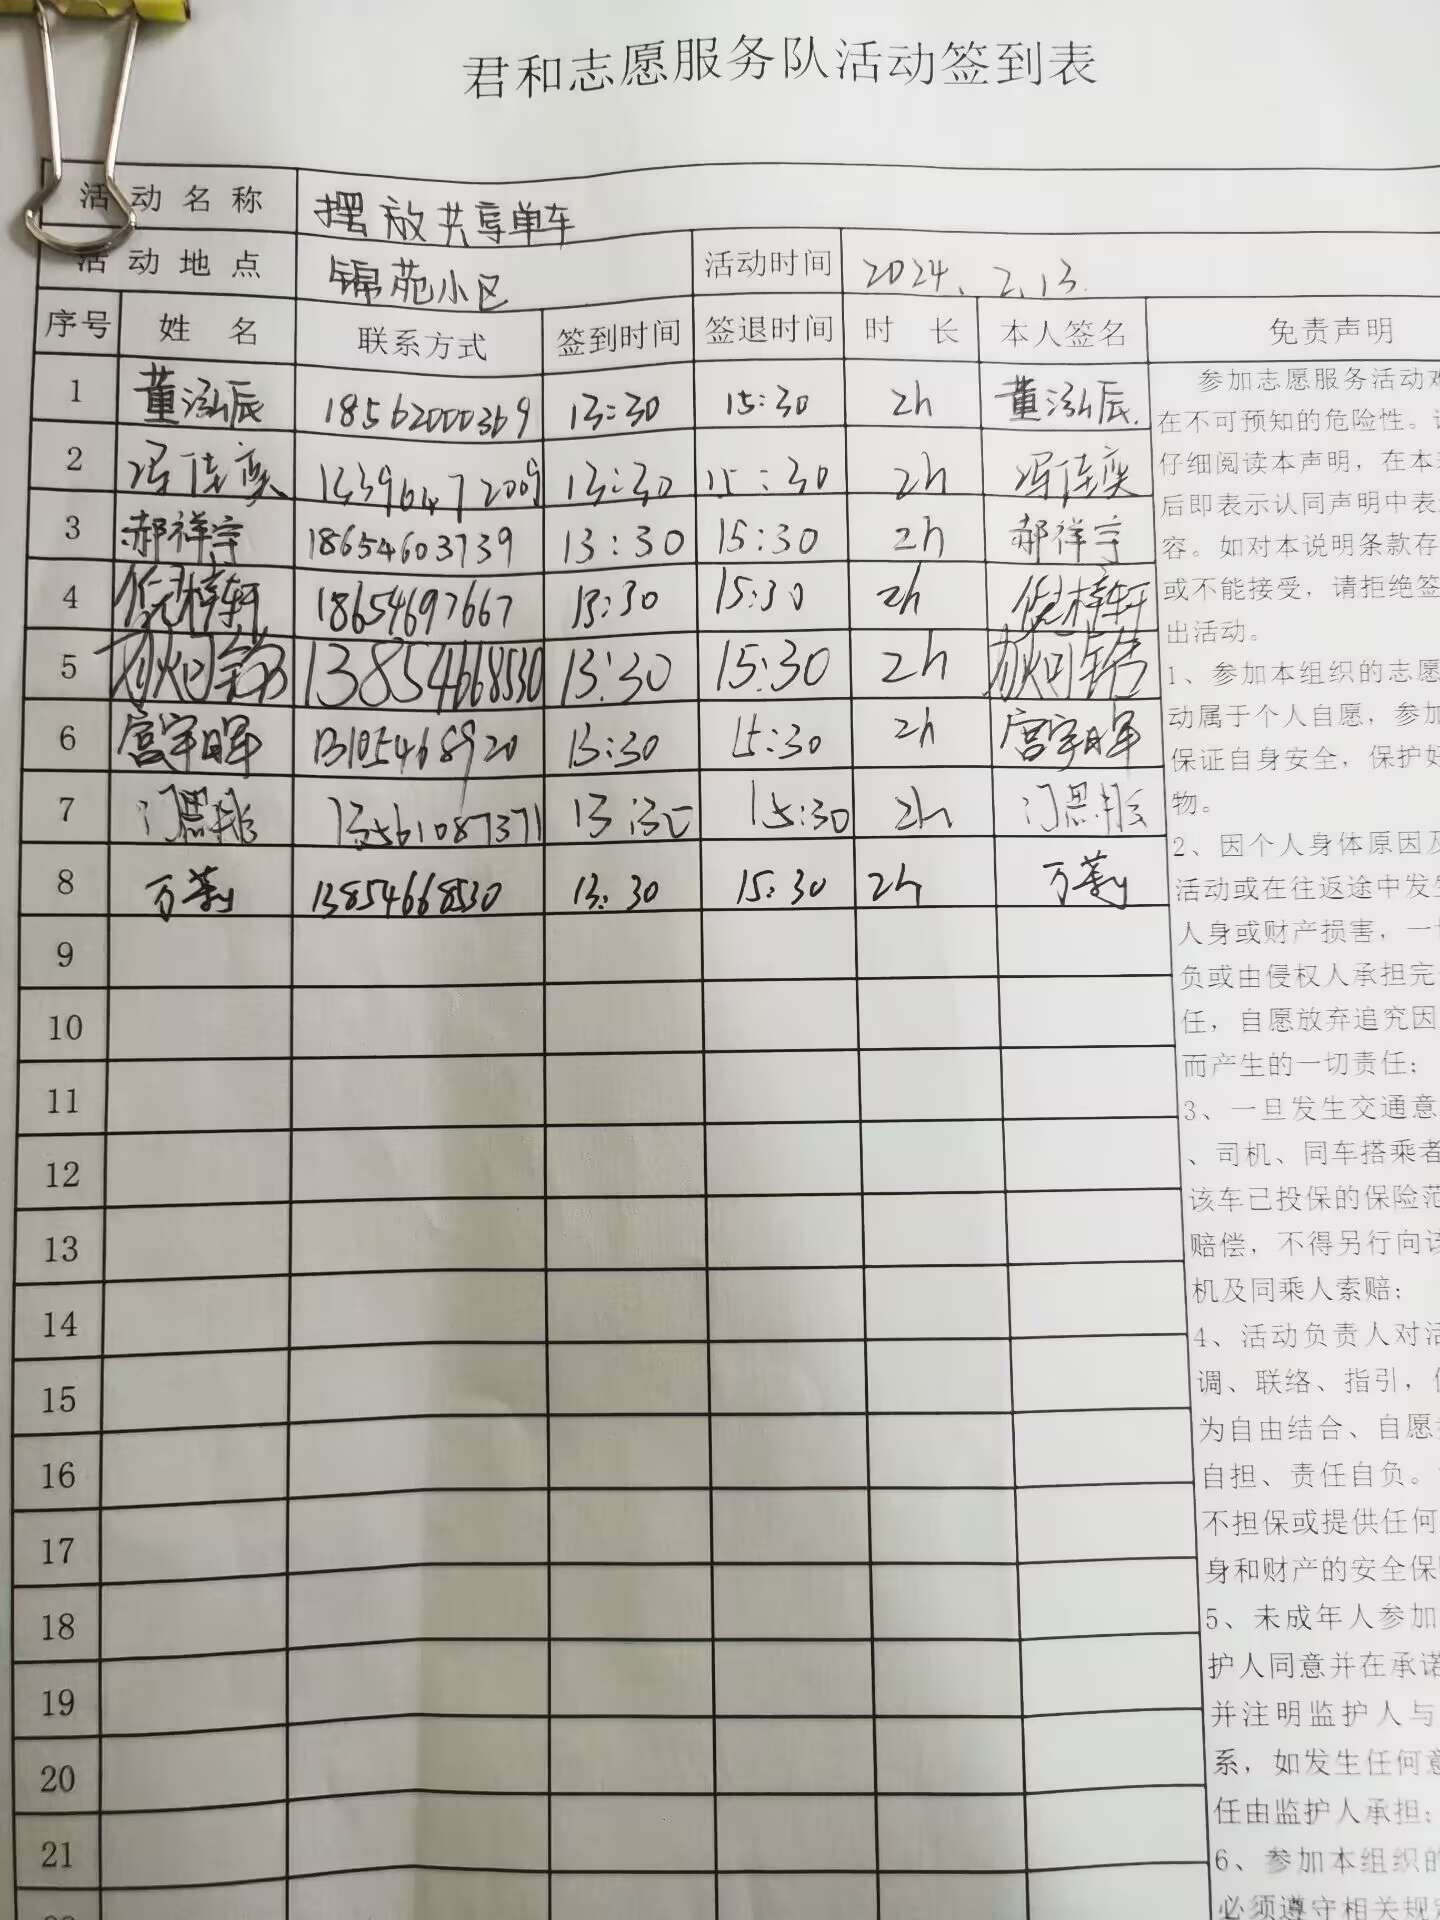 君和志愿服务队活动签到表
活动名称 摆放共享单车
活动地点 锦苑小区 活动时间 2024.2.13.
序号 姓名 联系方式 签到时间 签退时间 时长 本人签名 免责声明
1 董泓辰 18562000369 13:30 15:30 2h 董泓辰.
2 冯佳奕 13396472009 13:30 15:30 2h 冯佳奕
3 郝祥宇 18654603739 13:30 15:30 2h 郝祥宇
4 梓轩 18654697667 13:30 15:30 2h 梓轩
5 13854668530 13:30 15:30 2h
6 宫宇晖 13105468920 13:30 15:30 2h 宫宇晖
7 门 13561087371 13:30 15:30 2h 门
8 万莉 13854668530 13:30 15:30 2h 万莉
9
10
11
12
13
14
15
16
17
18
19
20
21
参加志愿服务活动
在不可预知的危险性。
仔细阅读本声明，在本
后即表示认同声明中表
容。如对本说明条款存
或不能接受，请拒绝签
出活动。
1、参加本组织的志愿
动属于个人自愿，参加
保证自身安全，保护好
物。
2、因个人身体原因及
活动或在往返途中发生
人身或财产损害，一
负或由侵权人承担完
任，自愿放弃追究因
而产生的一切责任；
3、一旦发生交通意
、司机、同车搭乘者
该车已投保的保险范
赔偿，不得另行向该
机及同乘人索赔；
4、活动负责人对活
调、联络、指引，
为自由结合、自愿
自担、责任自负。
不担保或提供任何
身和财产的安全保
5、未成年人参加
护人同意并在承诺
并注明监护人与
系，如发生任何意
任由监护人承担；
6、参加本组织的
必须遵守相关规定